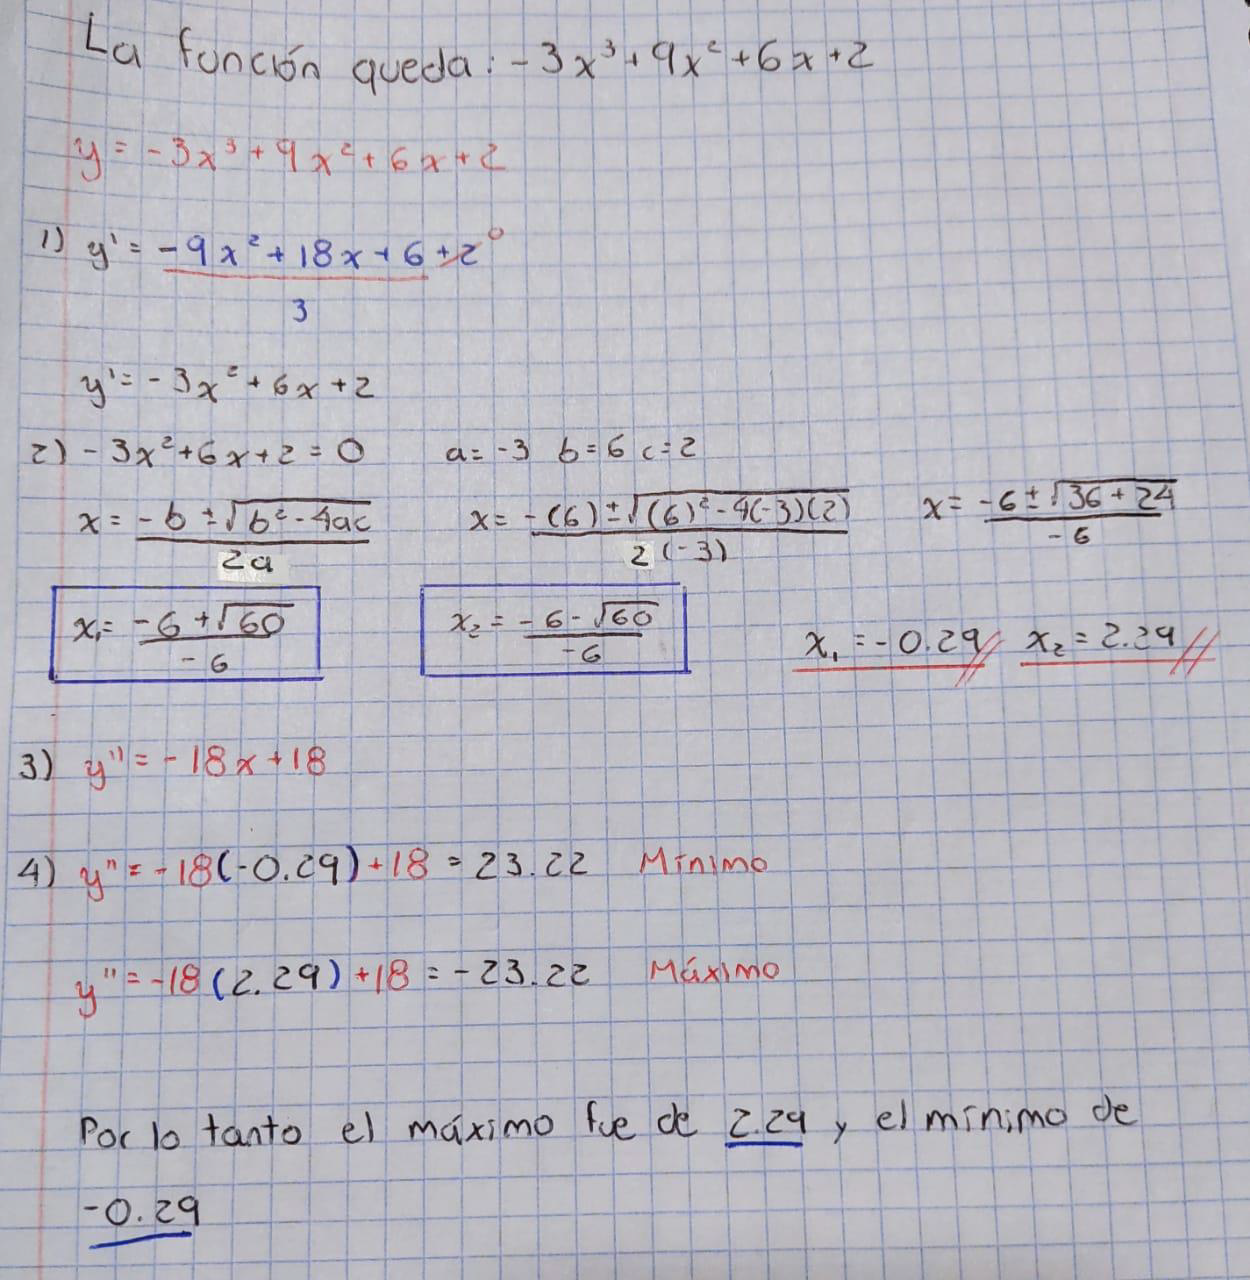 La función queda: -3x³+9x²+6x+2
y = -3x³+9x²+6x+2
1) y' = -9x²+18x+6+2⁰
3
y' = -3x²+6x+2
2) -3x²+6x+2=0 a=-3 b=6 c=2
x = -b ±√b²-4ac / 2a x = -(6)±√(6)²-4(-3)(2) / 2(-3) x = -6±√36+24 / -6
x₁= -6+√60 / -6 x₂= -6-√60 / -6 x₁ =-0.29// x₂=2.29//
3) y''=-18x+18
4) y''=-18(-0.29)+18 = 23.22 Mínimo
y''=-18(2.29)+18=-23.22 Máximo
Por lo tanto el máximo fue de 2.29 y el mínimo de
-0.29